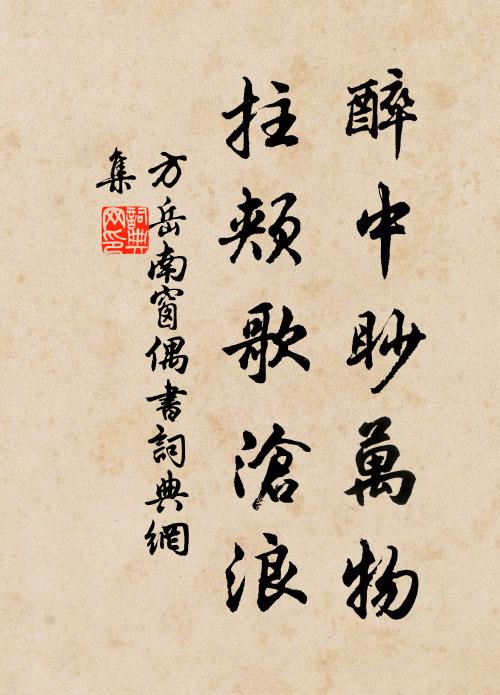 醉中眇萬物
拄頰歌滄浪
方岳南窗偶書詞典網
集
詞典網印